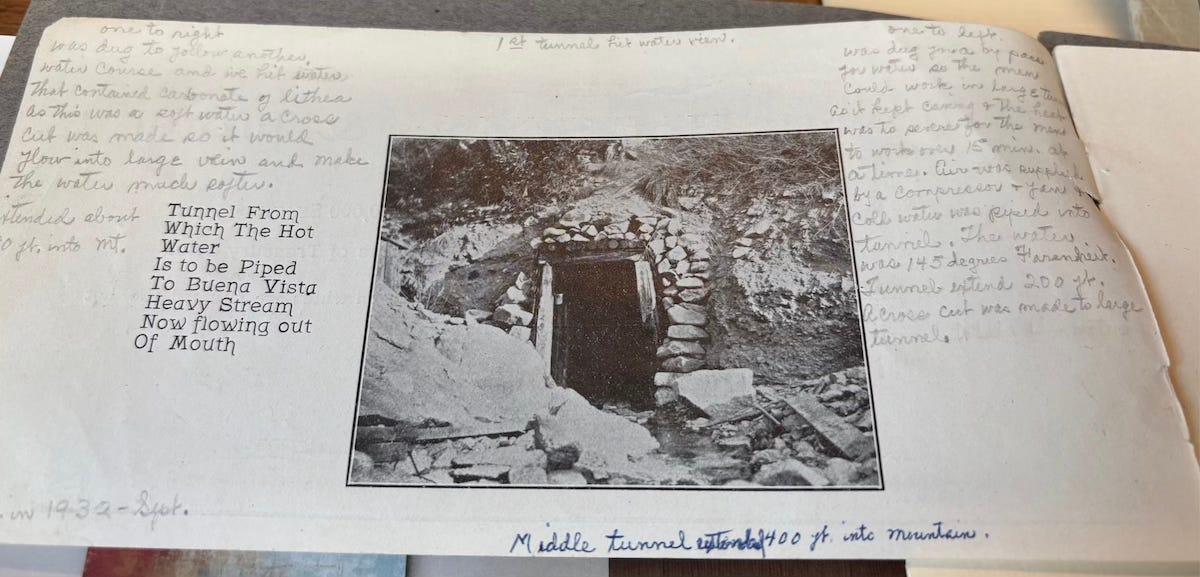 one to right
was dug to follow another
water course and we hit water
that contained carbonate of lithea
as this was a soft water a cross
cut was made so it would
flow into large vein and make
the water much softer.
tended about
0 ft. into Mt.
1st tunnel hit water vein.
one to left.
was dug for a by pass
for water so the men
could work in large
as it kept caving & the heat
was to severe for the men
to work over 15 min. at
a time. Air was
by a compressor &
cold water was piped into
tunnel. The water
was 145 degrees Farenheit.
Tunnel extend 200 ft.
A cross cut was made to large
tunnel.
Tunnel From
Which The Hot
Water
Is to be Piped
To Buena Vista
Heavy Stream
Now flowing out
Of Mouth
in 1932 - Sept.
Middle tunnel extended 400 ft. into mountain.